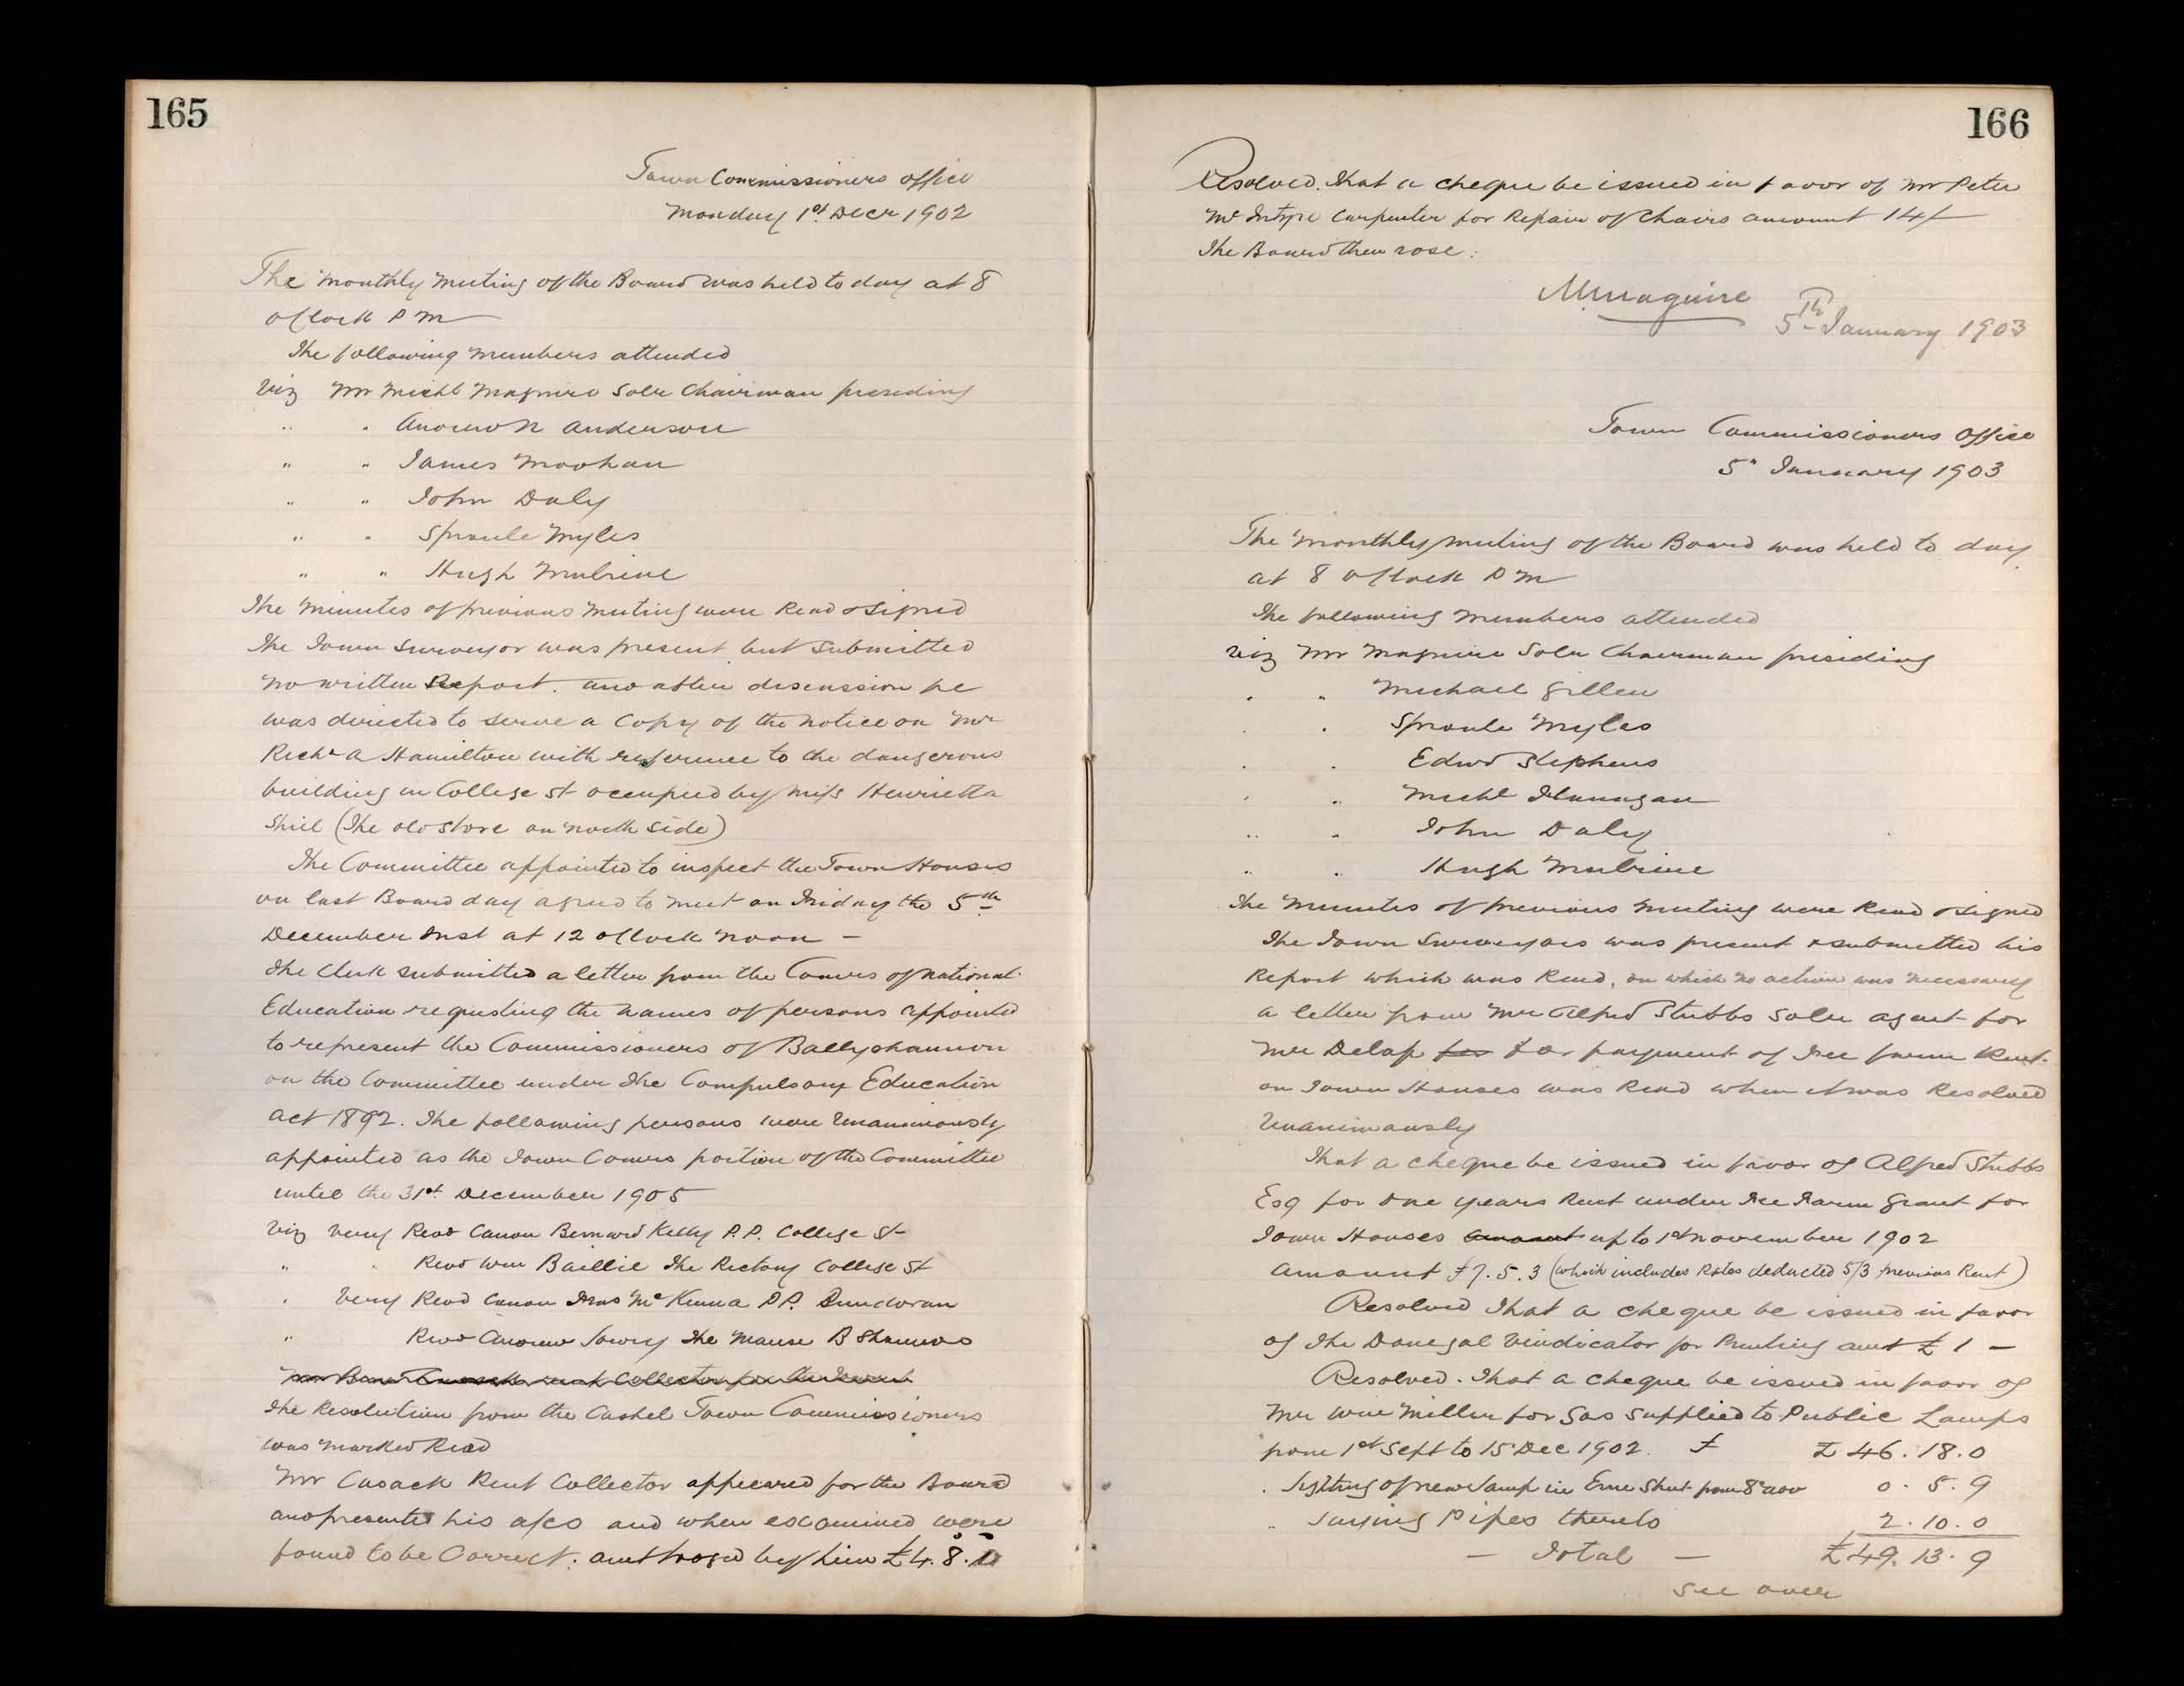 165
Town Commissioners Office
Monday 1st Decr 1902
The Monthly Meeting of the Board was held to day at 8
oClock P M
The following Members attended
Viz Mr Michl Maguire Solr Chairman presiding
" " Andrew N Anderson
" " James Moohan
" " John Daly
" " Sproule Myles
" " Hugh Mulrine
The Minutes of previous Meeting were Read & Signed
The Town Surveyor was present but Submitted
no written Report. and after discussion he
was directed to serve a Copy of the Notice on Mr
Richd A Hamilton with reference to the dangerous
building in College St occupied by Miss Henrietta
Shiel (The old Store on North Side)
The Committee appointed to inspect the Town Houses
on last Board day agreed to Meet on Friday the 5th
December Inst at 12 oClock Noon -
The Clerk submitted a letter from the Comrs of National
Education requesting the names of persons appointed
to represent the Commissioners of Ballyshannon
on the Committee under The Compulsory Education
Act 1892. The following persons were Unanimously
appointed as the Town Comrs portion of the Committee
until the 31st December 1905
Viz Very Revd Canon Bernard Kelly P.P. College St
" " Revd Wm Baillie The Rectory College St
" Very Revd Canon Thos McKenna P.P. Bundoran
" Revd Andrew Lowry The Manse B Shannon
The Resolution from the Cashel Town Commissioners
was Marked Read
Mr Cusack Rent Collector appeared for the Board
and presented his a/cs and when examined were
found to be Correct. Amt lodged by him £4. 8.
166
Resolved. That a cheque be issued in favor of Mr Peter
McIntyre Carpenter for Repair of Chairs amount 14/-
The Board then rose:
M. Maguire
5th January 1903
Town Commissioners Office
5" January 1903
The Monthly Meeting of the Board was held to day
at 8 oClock P M
The following Members attended
Viz Mr Maguire Solr Chairman presiding
" " Michael Gillen
" " Sproule Myles
" " Edwd Stephens
" " Michl Flannagan
" " John Daly
" " Hugh Mulrine
The Minutes of previous Meeting were Read & Signed
The Town Surveyors was present & submitted his
Report which was Read, on which no action was necessary
a letter from Mr Alfred Stubbs Solr agent for
Mr Delap for for payment of Fee farm Rent
on Town Houses was Read when it was Resolved
Unanimously
That a cheque be issued in favor of Alfred Stubbs
Esq for One years Rent under Fee Farm Grant for
Town Houses amount up to 1st November 1902
Amount £7. 5. 3 (which includes Rates deducted 5/3 previous Rent)
Resolved That a cheque be issued in favor
of The Donegal Vindicator for Printing amt £1 -
Resolved. That a cheque be issued in favor of
Mr Wm Miller for Gas supplied to Public Lamps
from 1st Sept to 15 Dec 1902. £ £46. 18. 0
" lighting of new Lamp in Erne Street from 8" Nov 0. 5. 9
" laying Pipes thereto 2. 10. 0
- Total - £49. 13. 9
see over